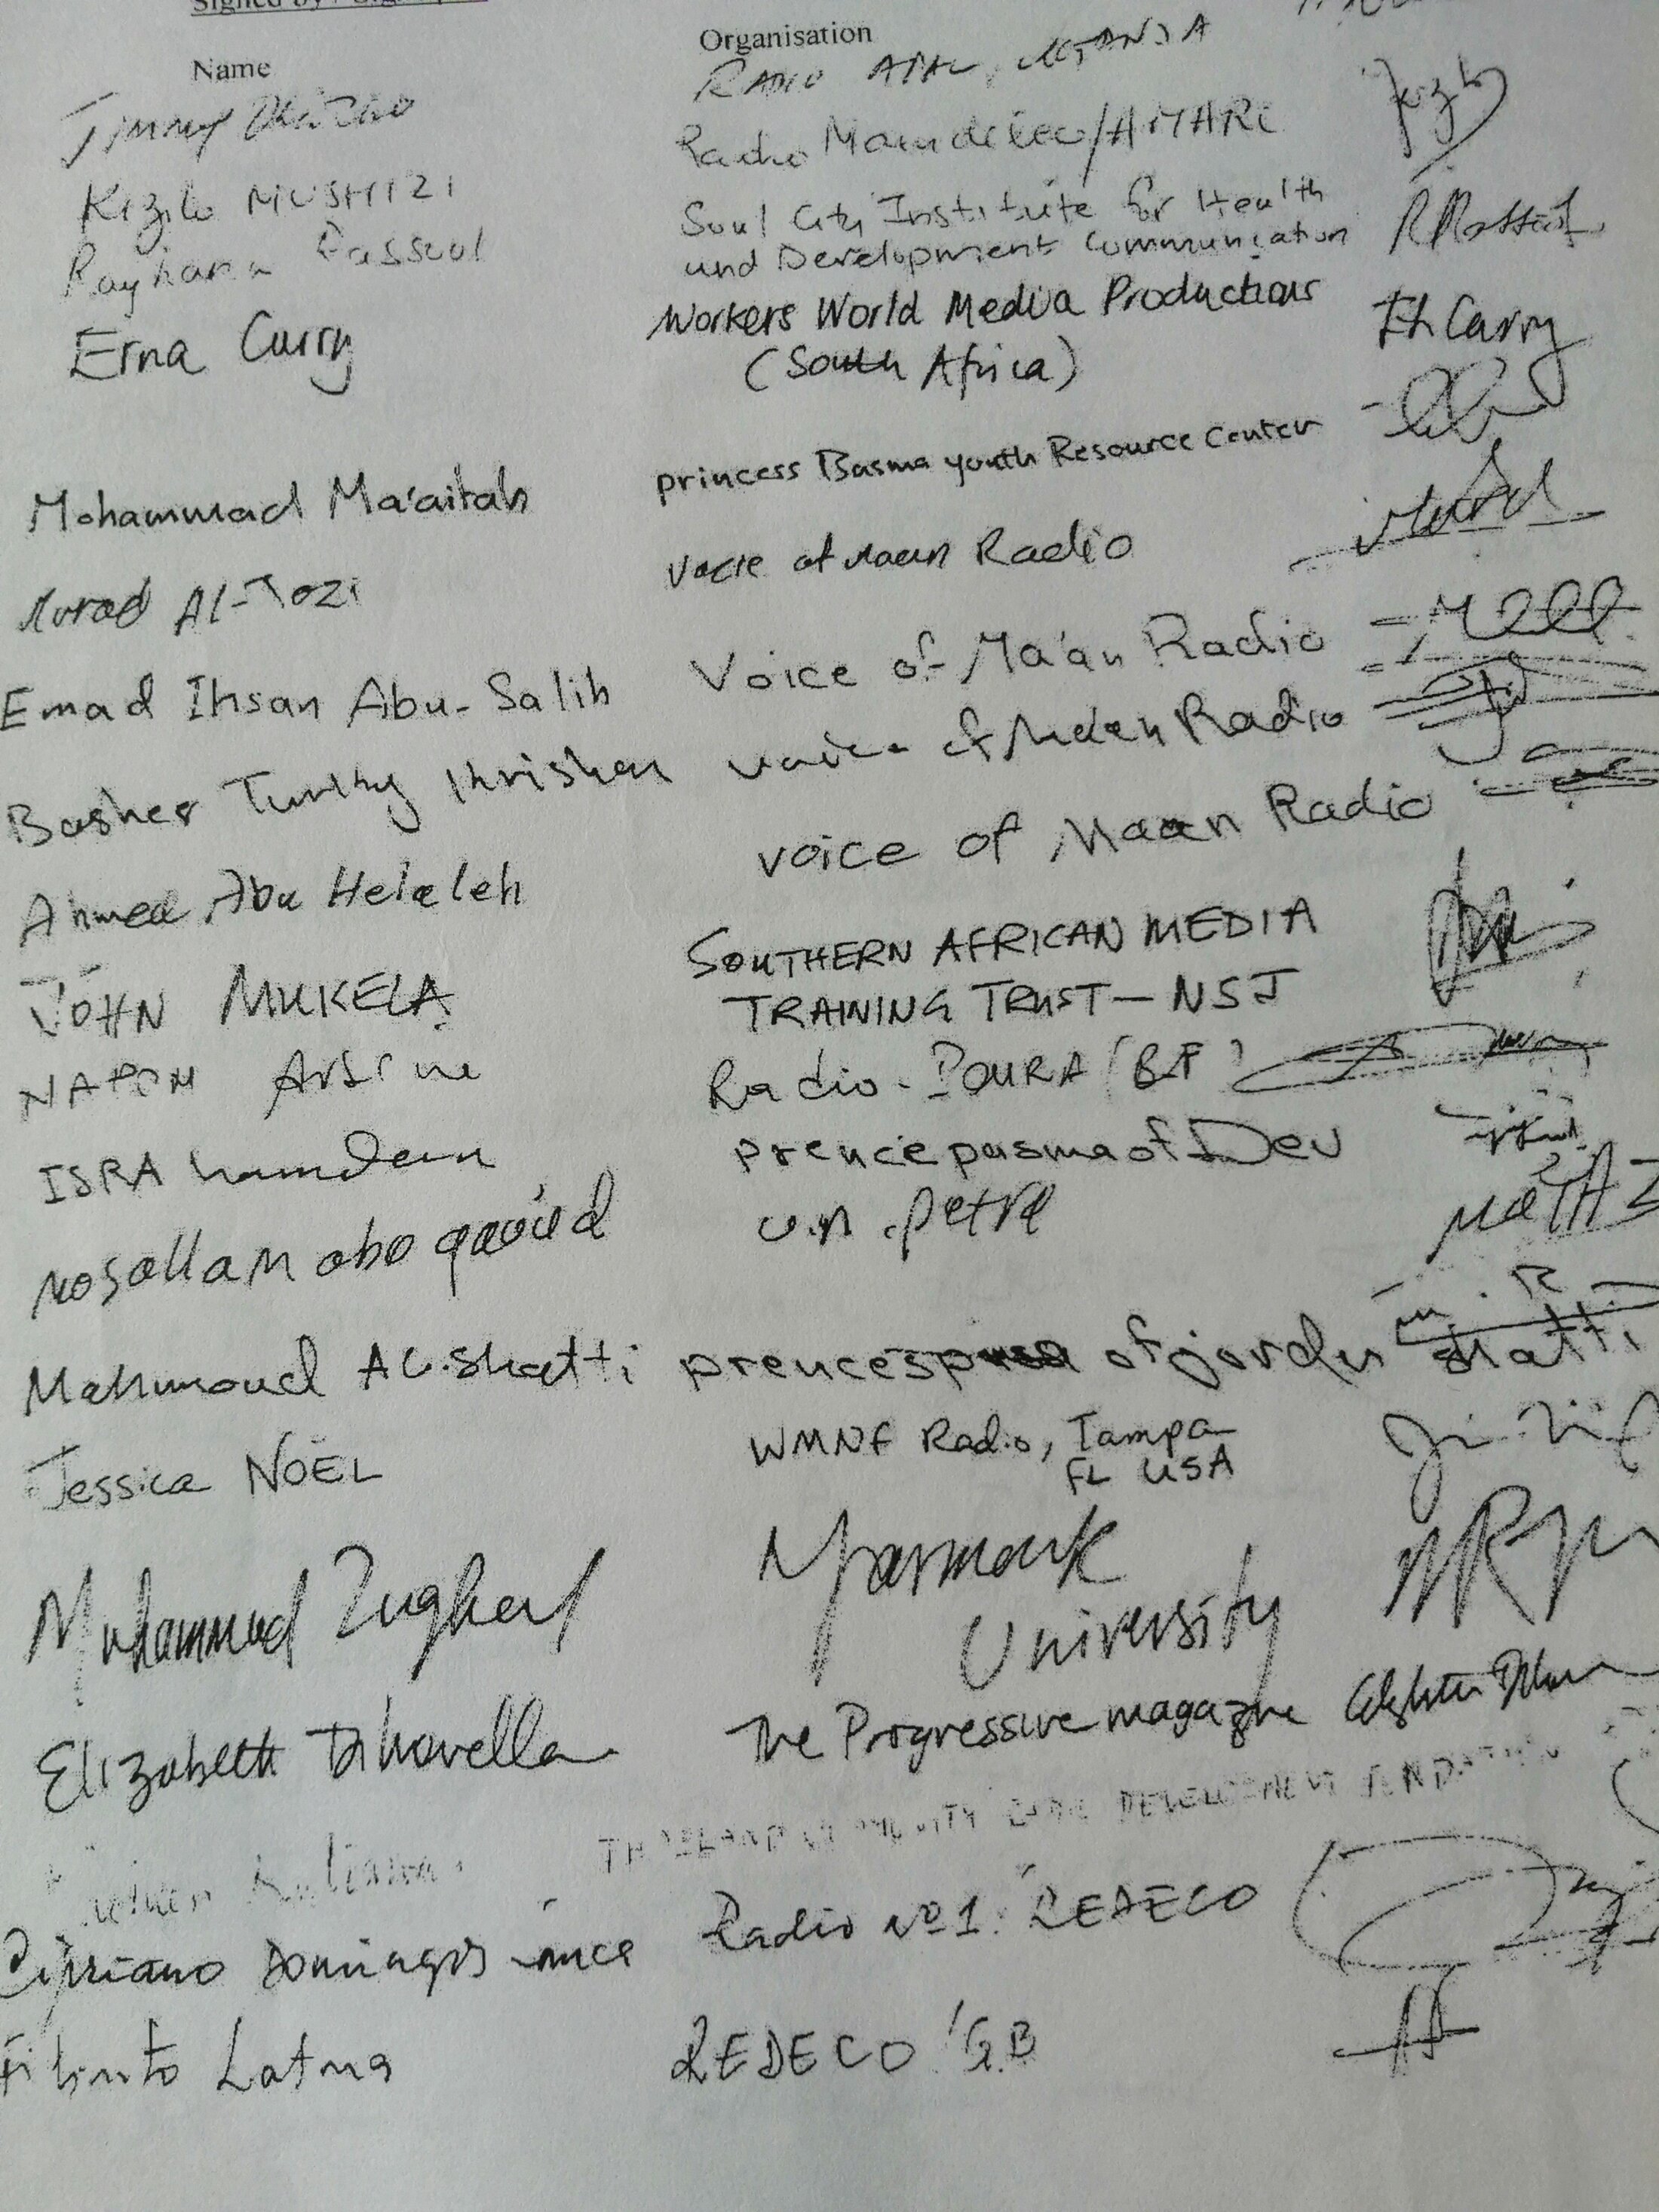 Signed by
Organisation
Name
RADIO APAC, UGANDA
Jimmy
Radio Maendeleo/AMARC
Kizito MUSHIZI
Soul City Institute for Health
Rayhana Rassool
and Development Communication
Workers World Media Productions
Erna Curry
(South Africa)
princess Basma youth Resource Center
Mohammad Ma'aitah
Voice of Maan Radio
Murad Al-Jozi
Voice of Ma'an Radio
Emad Ihsan Abu-Salih
Voice of Ma'an Radio
Basher Turkky Khrishan
voice of Maan Radio
Ahmed Abu Helaleh
SOUTHERN AFRICAN MEDIA
JOHN MUKELA
TRAINING TRUST - NSJ
NAPON Arsène
Radio-POURA (BF)
ISRA hamdan
prence pasma of Dev
Mosallam abo
U.N. petra
Mahmoud AL.shatti prences of jordan shatti
WMNF Radio, Tampa
FL USA
Jessica NOËL
Yarmouk
University
Muhammad Zughoul
The Progressive magazine
Elizabeth DiNovella
COMMUNITY DEVELOPMENT
Radio Nº 1. REDECO
Cipriano Domingos
REDECO / G.B
Filinto